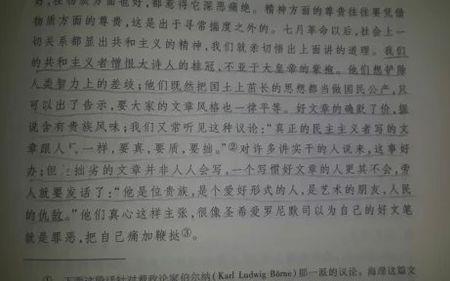 好，在物质方面也好，都惹得它深恶痛绝。精神方面的尊贵往往要凭借
物质方面的尊贵，这是出于寻常揣度之外的。七月革命以后，社会上一
切关系都显出共和主义的精神，我们就亲切悟出上面讲的道理。我们
的共和主义者憎恨大诗人的桂冠，不亚于大皇帝的紫袍。他们想铲除
人类智力上的差歧；他们既然把国土上苗长的思想都当做国民公产，其
可以出了告示，要大家的文章风格也一律平等。好文章的确跌了价，据
说含有贵族风味；我们又常听见这种议论：“真正的民主主义者写的文
章跟人一样，要真，要质，要拙。”②对许多讲实干的人说来，这事好
办；但拙劣的文章并非人人会写，一个写惯好文章的人更其不会，旁
人就要发话了：“他是位贵族，是个爱好形式的人，是艺术的朋友，人民
的仇敌。”他们真心这样主张，很像圣希爱罗尼默司以为自己的好文笔
就是罪恶，把自己痛加鞭挞③。
① 下面这段话针对激政论家伯尔纳(Karl Ludwig Börne)那一派的议论。海涅这篇文